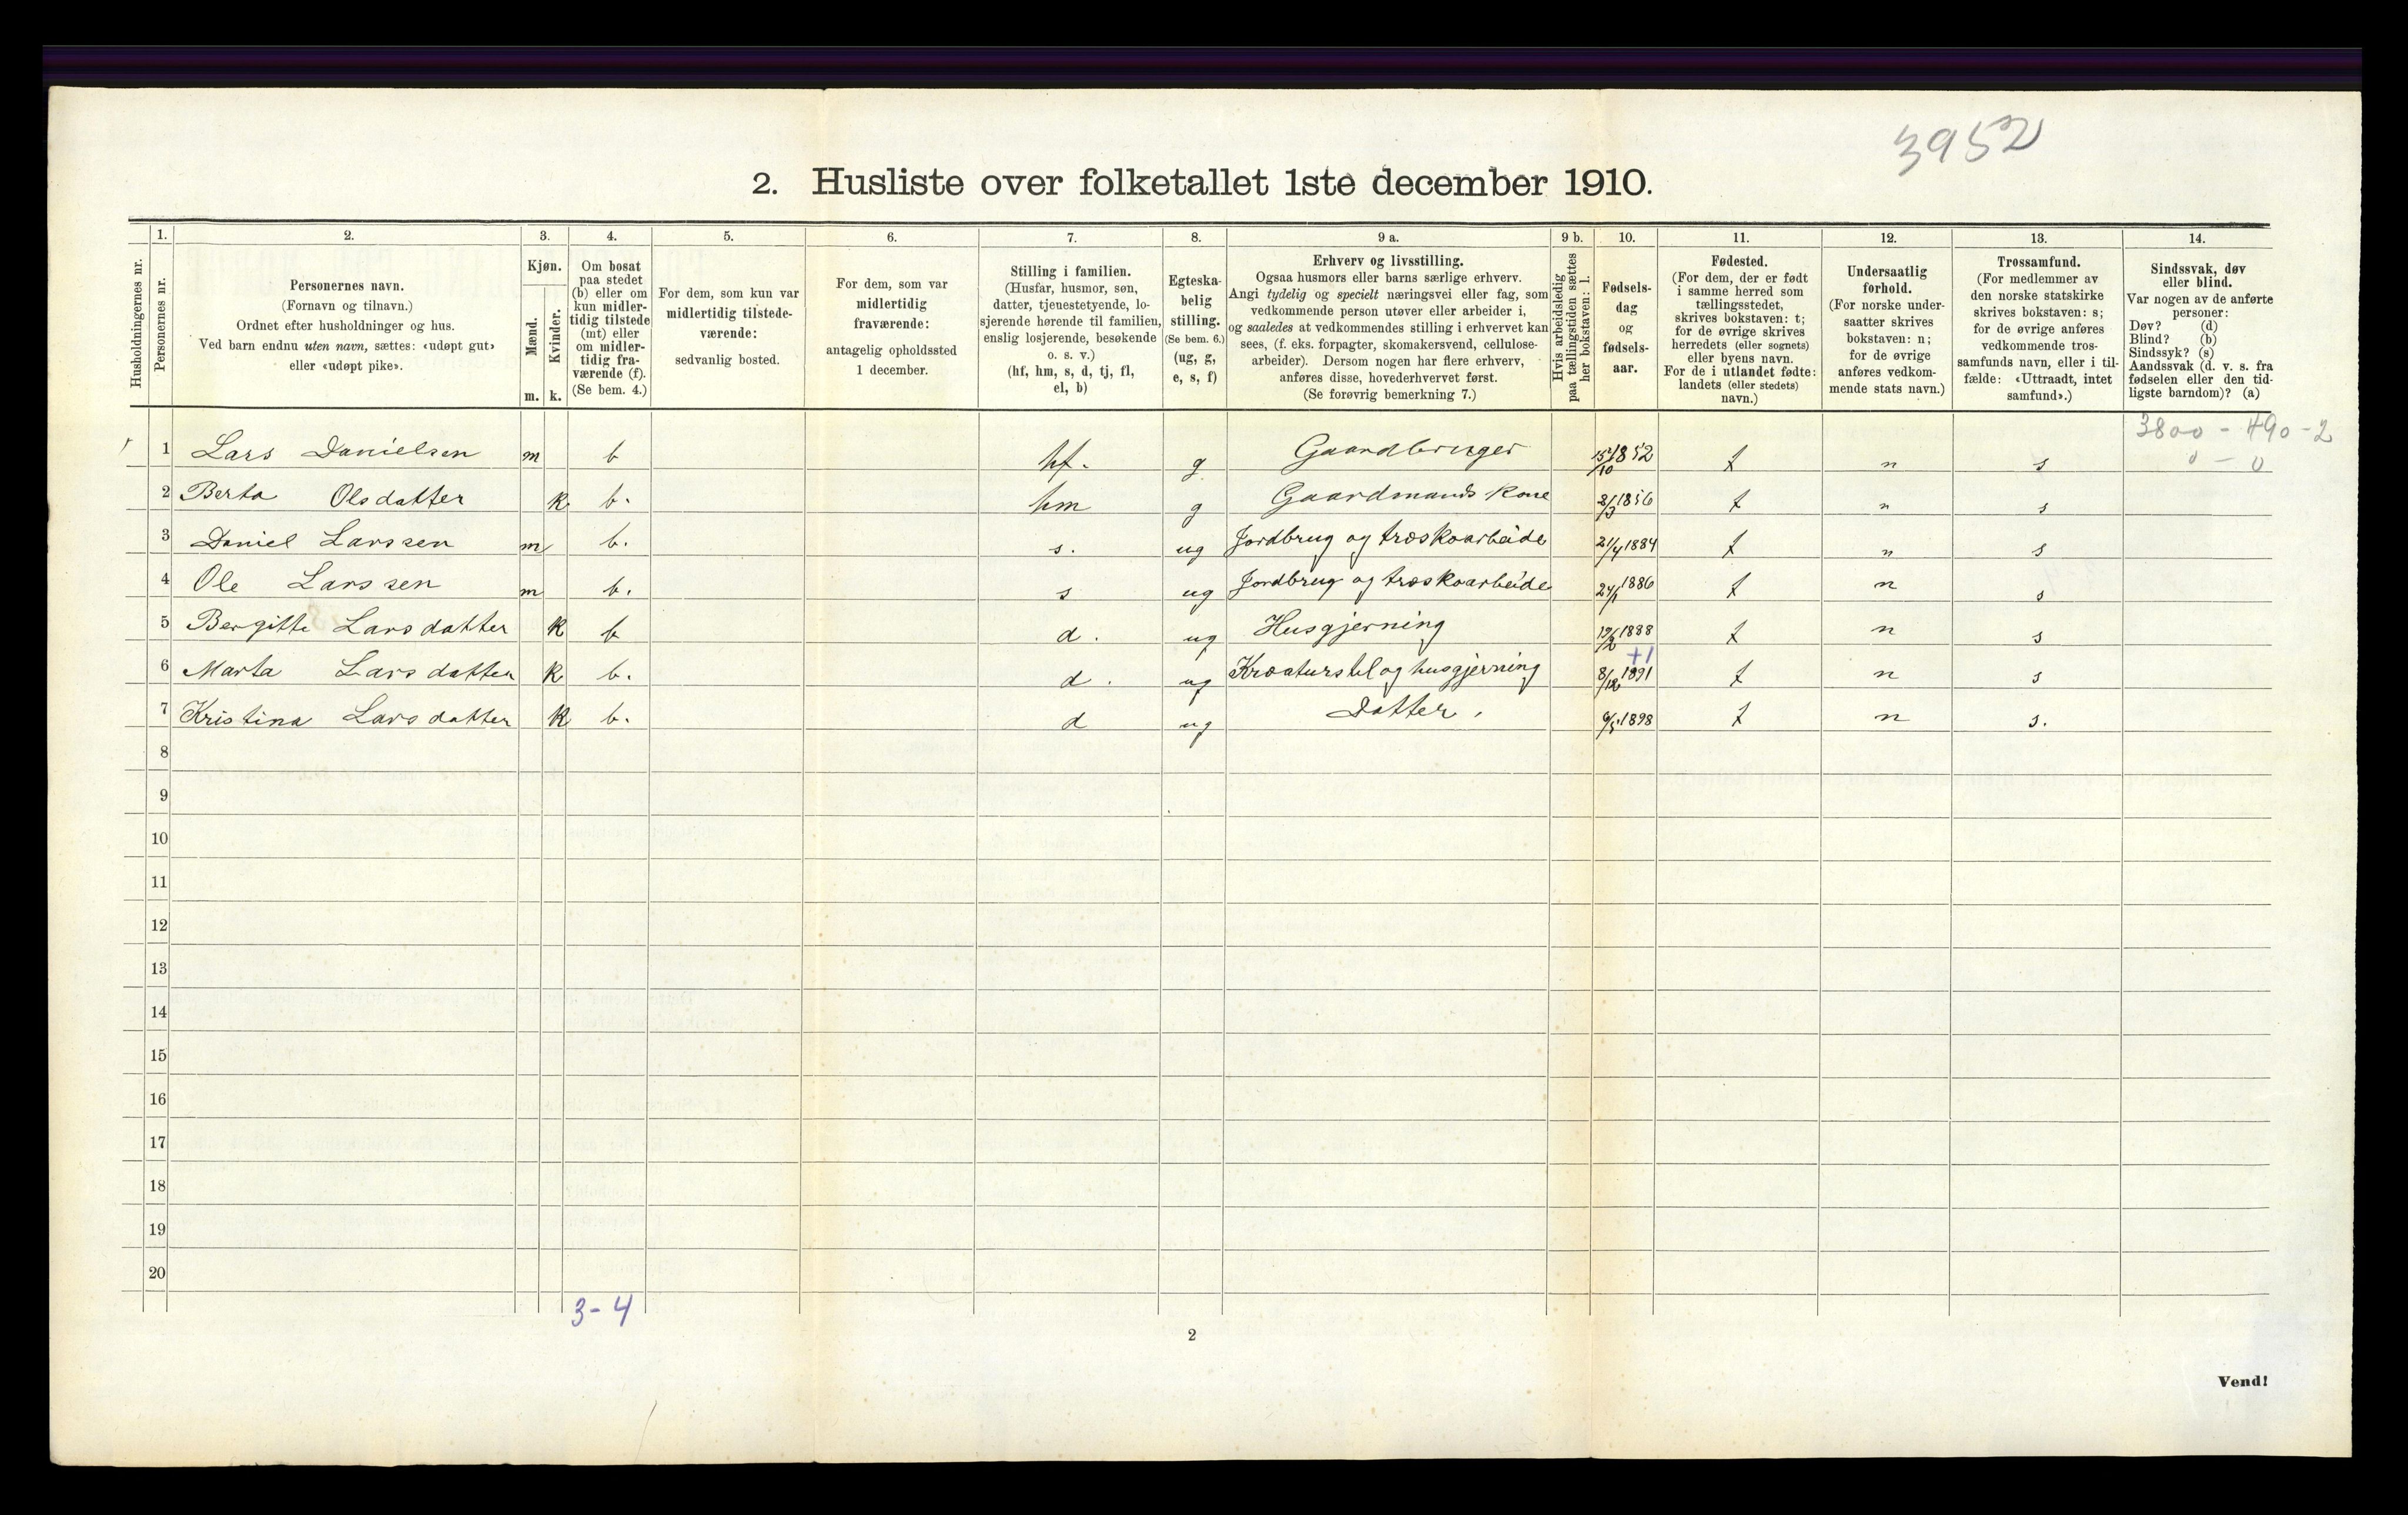 3952
2. Husliste over folketallet 1ste december 1910.
Husholdningernes nr.
1.
Personernes nr.
2.
Personernes navn.
(Fornavn og tilnavn.)
Ordnet efter husholdninger og hus.
Ved barn endnu uten navn, sættes: «udøpt gut»
eller «udøpt pike».
3.
Kjøn.
Mænd.
Kvinder.
m. k.
4.
Om bosat
paa stedet
(b) eller om
kun midler-
tidig tilstede
(mt) eller
om midler-
tidig fra-
værende (f).
(Se bem. 4.)
5.
For dem, som kun var
midlertidig tilstede-
værende:
sedvanlig bosted.
6.
For dem, som var
midlertidig
fraværende:
antagelig opholdssted
1 december.
7.
Stilling i familien.
(Husfar, husmor, søn,
datter, tjenestetyende, lo-
sjerende hørende til familien,
enslig losjerende, besøkende
o. s. v.)
(hf, hm, s, d, tj, fl,
el, b)
8.
Egteska-
belig
stilling.
(Se bem. 6.)
(ug, g,
e, s, f)
9 a.
Erhverv og livsstilling.
Ogsaa husmors eller barns særlige erhverv.
Angi tydelig og specielt næringsvei eller fag, som
vedkommende person utøver eller arbeider i,
og saaledes at vedkommendes stilling i erhvervet kan
sees, (f. eks. forpagter, skomakersvend, cellulose-
arbeider). Dersom nogen har flere erhverv,
anføres disse, hovederhvervet først.
(Se forøvrig bemerkning 7.)
9 b.
Hvis arbeidsledig
paa tællingstiden sættes
her bokstaven: l.
10.
Fødsels-
dag
og
fødsels-
aar.
11.
Fødested.
(For dem, der er født
i samme herred som
tællingsstedet,
skrives bokstaven: t;
for de øvrige skrives
herredets (eller sognets)
eller byens navn.
For de i utlandet fødte:
landets (eller stedets)
navn.)
12.
Undersaatlig
forhold.
(For norske under-
saatter skrives
bokstaven: n;
for de øvrige
anføres vedkom-
mende stats navn.)
13.
Trossamfund.
(For medlemmer av
den norske statskirke
skrives bokstaven: s;
for de øvrige anføres
vedkommende tros-
samfunds navn, eller i til-
fælde: «Uttraadt, intet
samfund».)
14.
Sindssvak, døv
eller blind.
Var nogen av de anførte
personer:
Døv? (d)
Blind? (b)
Sindssyk? (s)
Aandssvak (d. v. s. fra
fødselen eller den tid-
ligste barndom)? (a)
3800 - 490 - 2
0 - 0
1 Lars Danielsen m b hf. g Gaardbruger 15/10 1852 t n s
2 Berta Olsdatter k b. hm g Gaardmands kone 2/3 1856 t n s
3 Daniel Larssen m b. s. ug Jordbrug og træskoarbeide 21/4 1884 t n s
4 Ole Larssen m b. s ug Jordbrug og træskoarbeide 24/1 1886 t n s
5 Bergitte Larsdatter k b d. ug Husgjerning 19/2 1888 t n s
+1
6 Marta Larsdatter k b. d. ug Kreaturstel og husgjerning 8/12 1891 t n s
7 Kristina Larsdatter k b. d ug Datter. 1898 t n s.
8
9
10
11
12
13
14
15
16
17
18
19
20
3-4
2
Vend!